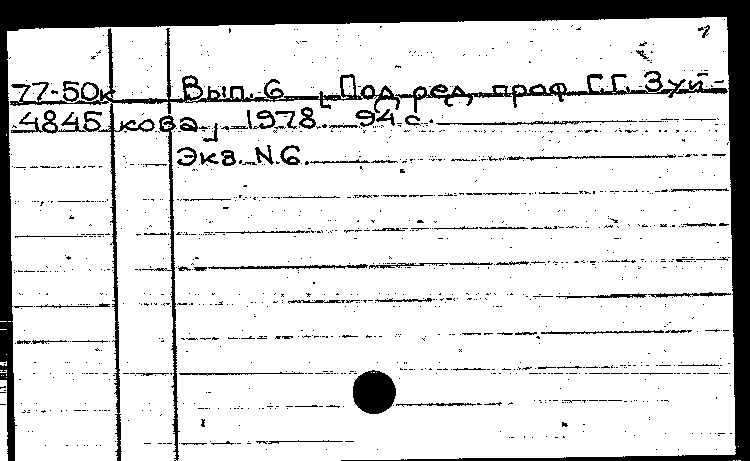 77-50к Вып. 6 [Под ред. проф. Г.Г. Зуй-
4845 кова]. 1978. 94 с.
Экз. N.6.